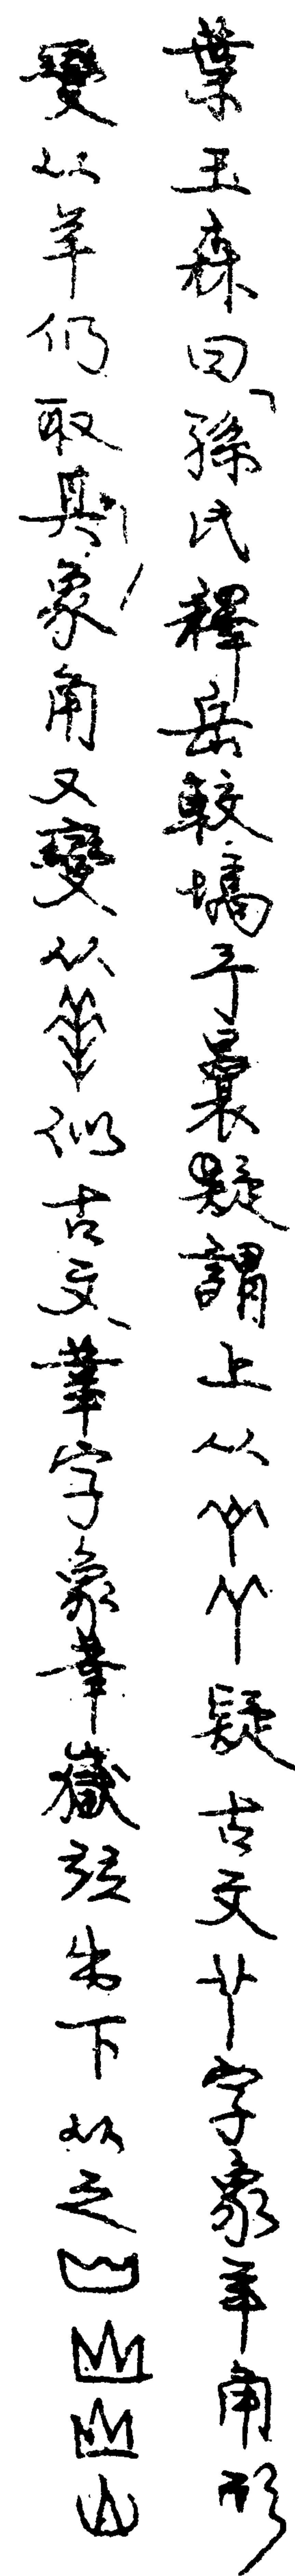 葉玉森曰「孫氏釋岳較塙予曩疑謂上从疑古文𦫳字象羊角形
變从羊仍取其象角又變从似古文華字象華嶽竝出下从之山